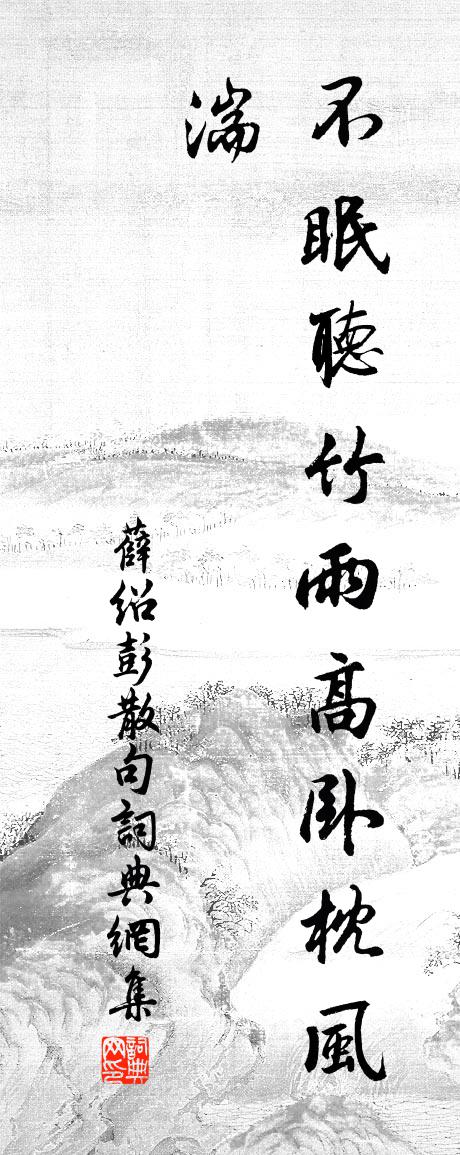 不眠聽竹雨高卧枕風
湍
薛紹彭散句詞典網集
詞典
网印